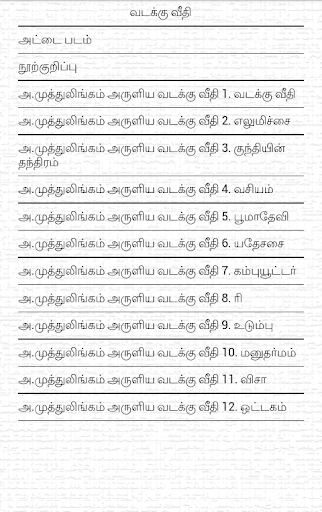 வடக்கு வீதி
அட்டை படம்
நூற்குறிப்பு
அ.முத்துலிங்கம் அருளிய வடக்கு வீதி 1. வடக்கு வீதி
அ.முத்துலிங்கம் அருளிய வடக்கு வீதி 2. எலுமிச்சை
அ.முத்துலிங்கம் அருளிய வடக்கு வீதி 3. குந்தியின்
தந்திரம்
அ.முத்துலிங்கம் அருளிய வடக்கு வீதி 4. வசியம்
அ.முத்துலிங்கம் அருளிய வடக்கு வீதி 5. பூமாதேவி
அ.முத்துலிங்கம் அருளிய வடக்கு வீதி 6. யதேசசை
அ.முத்துலிங்கம் அருளிய வடக்கு வீதி 7. கம்புயூட்டர்
அ.முத்துலிங்கம் அருளிய வடக்கு வீதி 8. ரி
அ.முத்துலிங்கம் அருளிய வடக்கு வீதி 9. உடும்பு
அ.முத்துலிங்கம் அருளிய வடக்கு வீதி 10. மனுதர்மம்
அ.முத்துலிங்கம் அருளிய வடக்கு வீதி 11. விசா
அ.முத்துலிங்கம் அருளிய வடக்கு வீதி 12. ஒட்டகம்